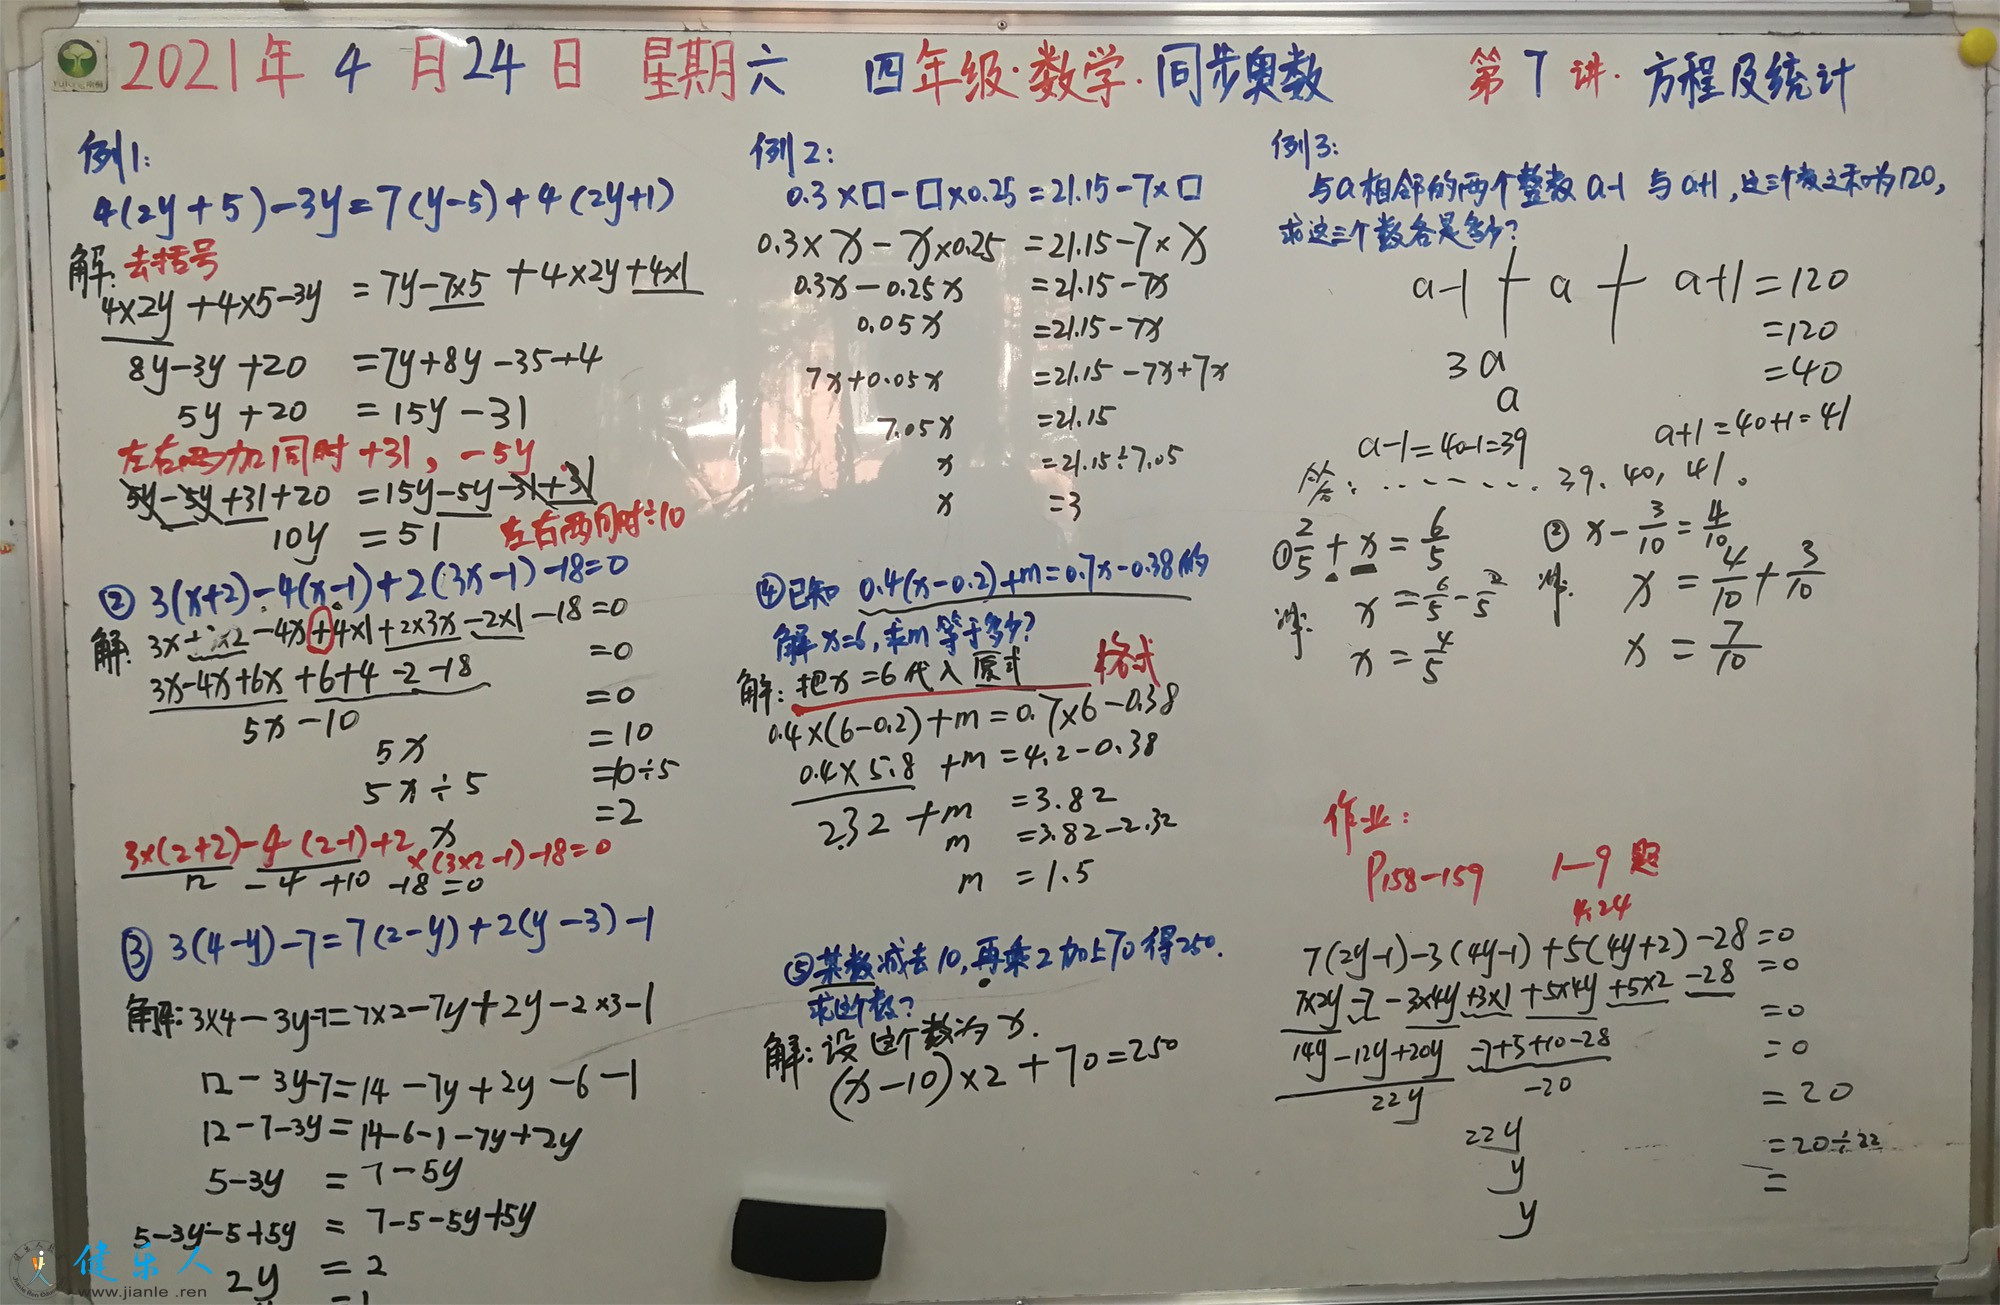 2021年 4 月24日 星期六 四年级·数学·同步奥数 第7讲·方程及统计
例1:
4(2y+5)-3y=7(y-5)+4(2y+1)
解: 去括号
4×2y+4×5-3y =7y-7×5+4×2y+4×1
8y-3y+20 =7y+8y-35+4
5y+20 =15y-31
左右两加同时+31, -5y
5y-5y+31+20 =15y-5y-31+31
10y =51 左右两同时÷10
② 3(x+2)-4(x-1)+2(3x-1)-18=0
解: 3x+3×2-4x+4×1+2×3x-2×1-18=0
3x-4x+6x+6+4-2-18 =0
5x-10 =0
5x =10
5x÷5 =10÷5
x =2
3×(2+2)-4(2-1)+2×(3×2-1)-18=0
12 -4 +10 -18=0
③ 3(4-y)-7=7(2-y)+2(y-3)-1
解:3×4-3y-7=7×2-7y+2y-2×3-1
12-3y-7=14-7y+2y-6-1
12-7-3y=14-6-1-7y+2y
5-3y = 7-5y
5-3y-5+5y = 7-5-5y+5y
2y =2
=1
例2:
0.3×□-□×0.25=21.15-7×□
0.3×x-x×0.25 =21.15-7×x
0.3x-0.25x =21.15-7x
0.05x =21.15-7x
7x+0.05x =21.15-7x+7x
7.05x =21.15
x =21.15÷7.05
x =3
④已知 0.4(x-0.2)+m=0.7x-0.38的
解x=6,求m等于多少?
解:把x=6代入原式 格式
0.4×(6-0.2)+m=0.7×6-0.38
0.4×5.8 +m =4.2-0.38
2.32+m =3.82
m =3.82-2.32
m =1.5
⑤某数减去10,再乘2加上70得250.
求这个数?
解:设这个数为x.
(x-10)×2+70=250
例3:
与a相邻的两个整数a-1与a+1,这三个数之和为120,
求这三个数各是多少?
a-1 + a + a+1=120
3a =120
a =40
a-1=40-1=39 a+1=40+1=41
答:........39、40, 41。
① 2/5+x=6/5
解: x=6/5-2/5
x=4/5
② x-3/10=4/10
解: x=4/10+3/10
x=7/10
作业:
P158-159 1-9题
4.24
7(2y-1)-3(4y-1)+5(4y+2)-28=0
7×2y-7-3×4y+3×1+5×4y+5×2-28 =0
14y-12y+20y -7+5+10-28 =0
22y -20 =0
22y =20
y =20÷22
y =
健乐人
www.jianle.ren